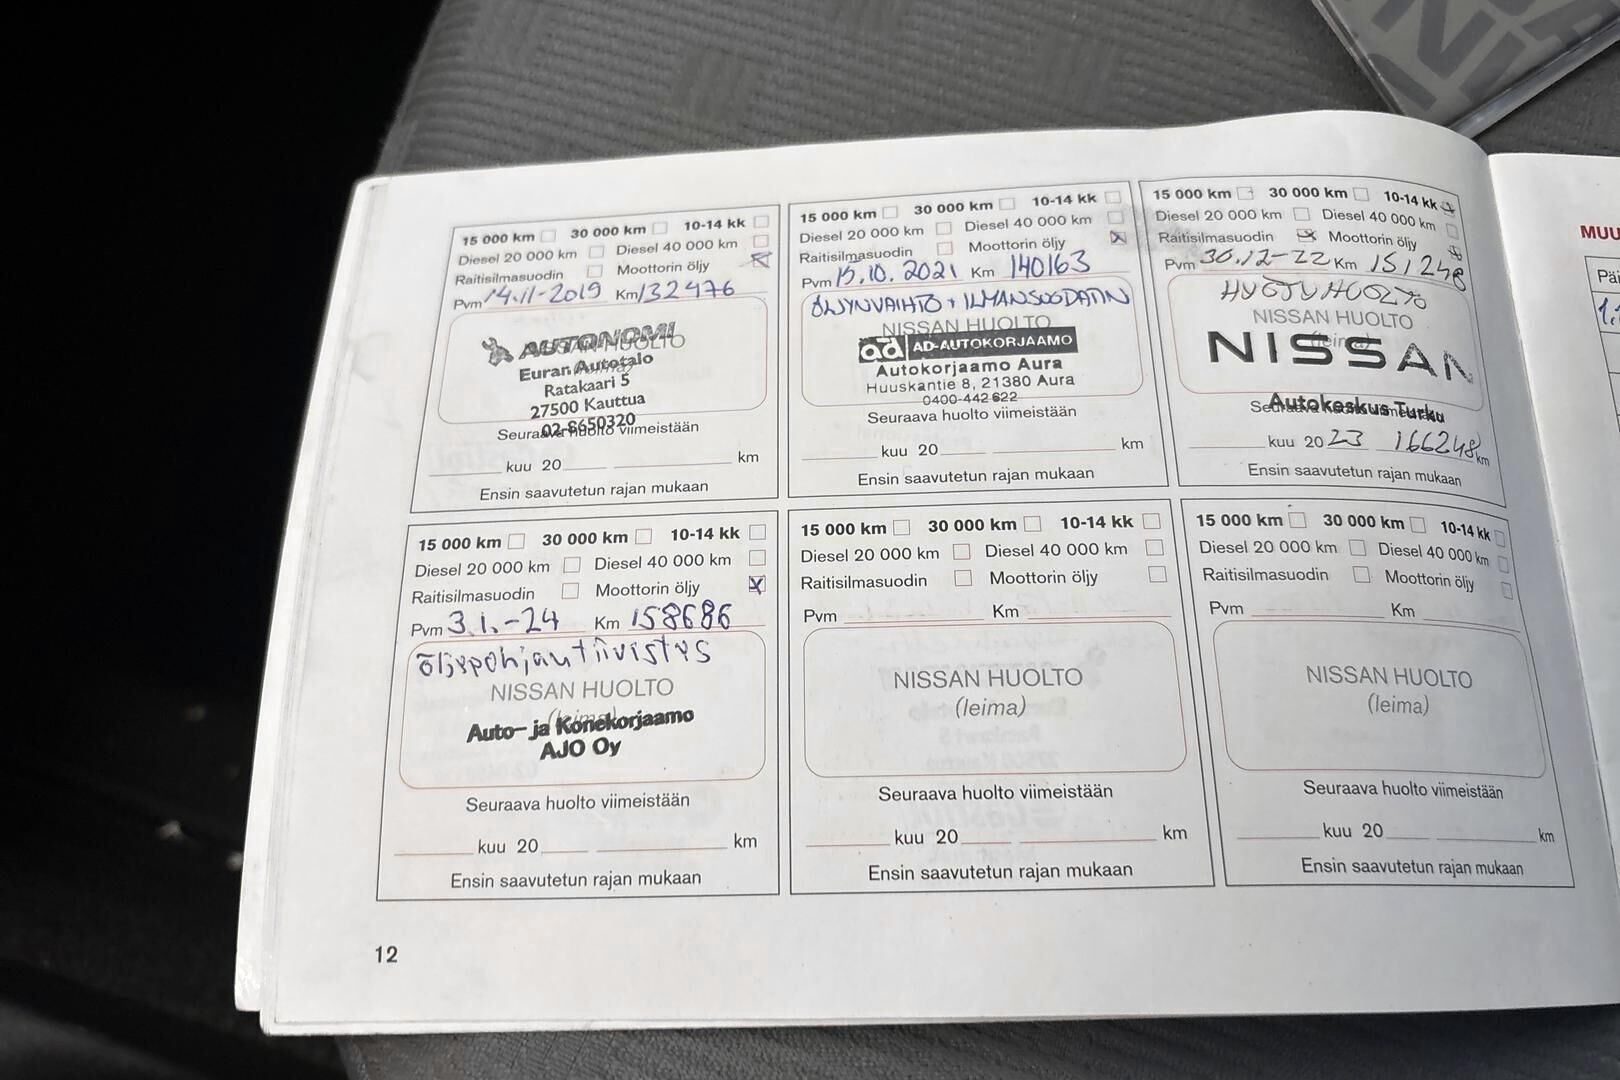 15 000 km 30 000 km 10-14 kk
Diesel 20 000 km Diesel 40 000 km
Raitisilmasuodin Moottorin öljy
Pvm 14.11-2019 Km 132476
AUTONOMI
NISSAN HUOLTO
Euran Autotalo
(leima)
Ratakaari 5
27500 Kauttua
02-8650320
Seuraava huolto viimeistään
kuu 20 km
Ensin saavutetun rajan mukaan
15 000 km 30 000 km 10-14 kk
Diesel 20 000 km Diesel 40 000 km
Raitisilmasuodin Moottorin öljy
Pvm 15.10.2021 Km 140163
ÖLJYNVAIHTO + ILMANSUODATIN
NISSAN HUOLTO
ad AD-AUTOKORJAAMO
Autokorjaamo Aura
Huuskantie 8, 21380 Aura
0400-442 622
Seuraava huolto viimeistään
kuu 20 km
Ensin saavutetun rajan mukaan
15 000 km 30 000 km 10-14 kk
Diesel 20 000 km Diesel 40 000 km
Raitisilmasuodin Moottorin öljy
Pvm 30.12-22 Km 151248
HYÖTYHUOLTO
NISSAN HUOLTO
(leima)
NISSAN
Autokeskus Turku
Seuraava huolto viimeistään
kuu 2023 166248 km
Ensin saavutetun rajan mukaan
15 000 km 30 000 km 10-14 kk
Diesel 20 000 km Diesel 40 000 km
Raitisilmasuodin Moottorin öljy
Pvm 3.1.-24 Km 158686
öljypohjantiivistys
NISSAN HUOLTO
(leima)
Auto- ja Konekorjaamo
AJO Oy
Seuraava huolto viimeistään
kuu 20 km
Ensin saavutetun rajan mukaan
15 000 km 30 000 km 10-14 kk
Diesel 20 000 km Diesel 40 000 km
Raitisilmasuodin Moottorin öljy
Pvm Km
NISSAN HUOLTO
(leima)
Seuraava huolto viimeistään
kuu 20 km
Ensin saavutetun rajan mukaan
15 000 km 30 000 km 10-14 kk
Diesel 20 000 km Diesel 40 000 km
Raitisilmasuodin Moottorin öljy
Pvm Km
NISSAN HUOLTO
(leima)
Seuraava huolto viimeistään
kuu 20 km
Ensin saavutetun rajan mukaan
12
MUU
Päi